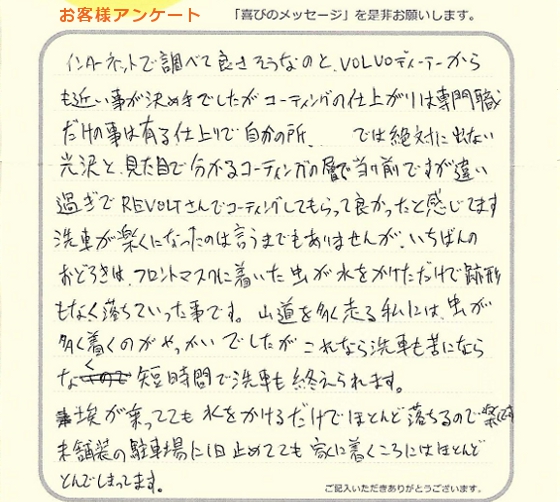 お客様アンケート 「喜びのメッセージ」を是非お願いします。
インターネットで調べて良さそうなのと、VOLVOディーラーから
も近い事が決め手でしたが コーティングの仕上がりは専門職
だけの事は有る仕上りで 自分の所、 では絶対に出ない
光沢と、見た目で分かるコーティングの層で当り前ですが違い
過ぎで REVOLTさんでコーティングしてもらって良かったと感じてます
洗車が楽になったのは言うまでもありませんが、いちばんの
おどろきは、フロントマスクに着いた虫が水をかけただけで跡形
もなく落ちていった事です。山道を多く走る私には、虫が
多く着くのがやっかいでしたが これなら洗車も苦になら
なく 短時間で洗車も終えられます。
埃が乗ってても 水をかけるだけでほとんど落ちるので楽です
未舗装の駐車場に1日止めてても 家に着くころにはほとんど
とんでしまってます。
ご記入いただきありがとうございます。